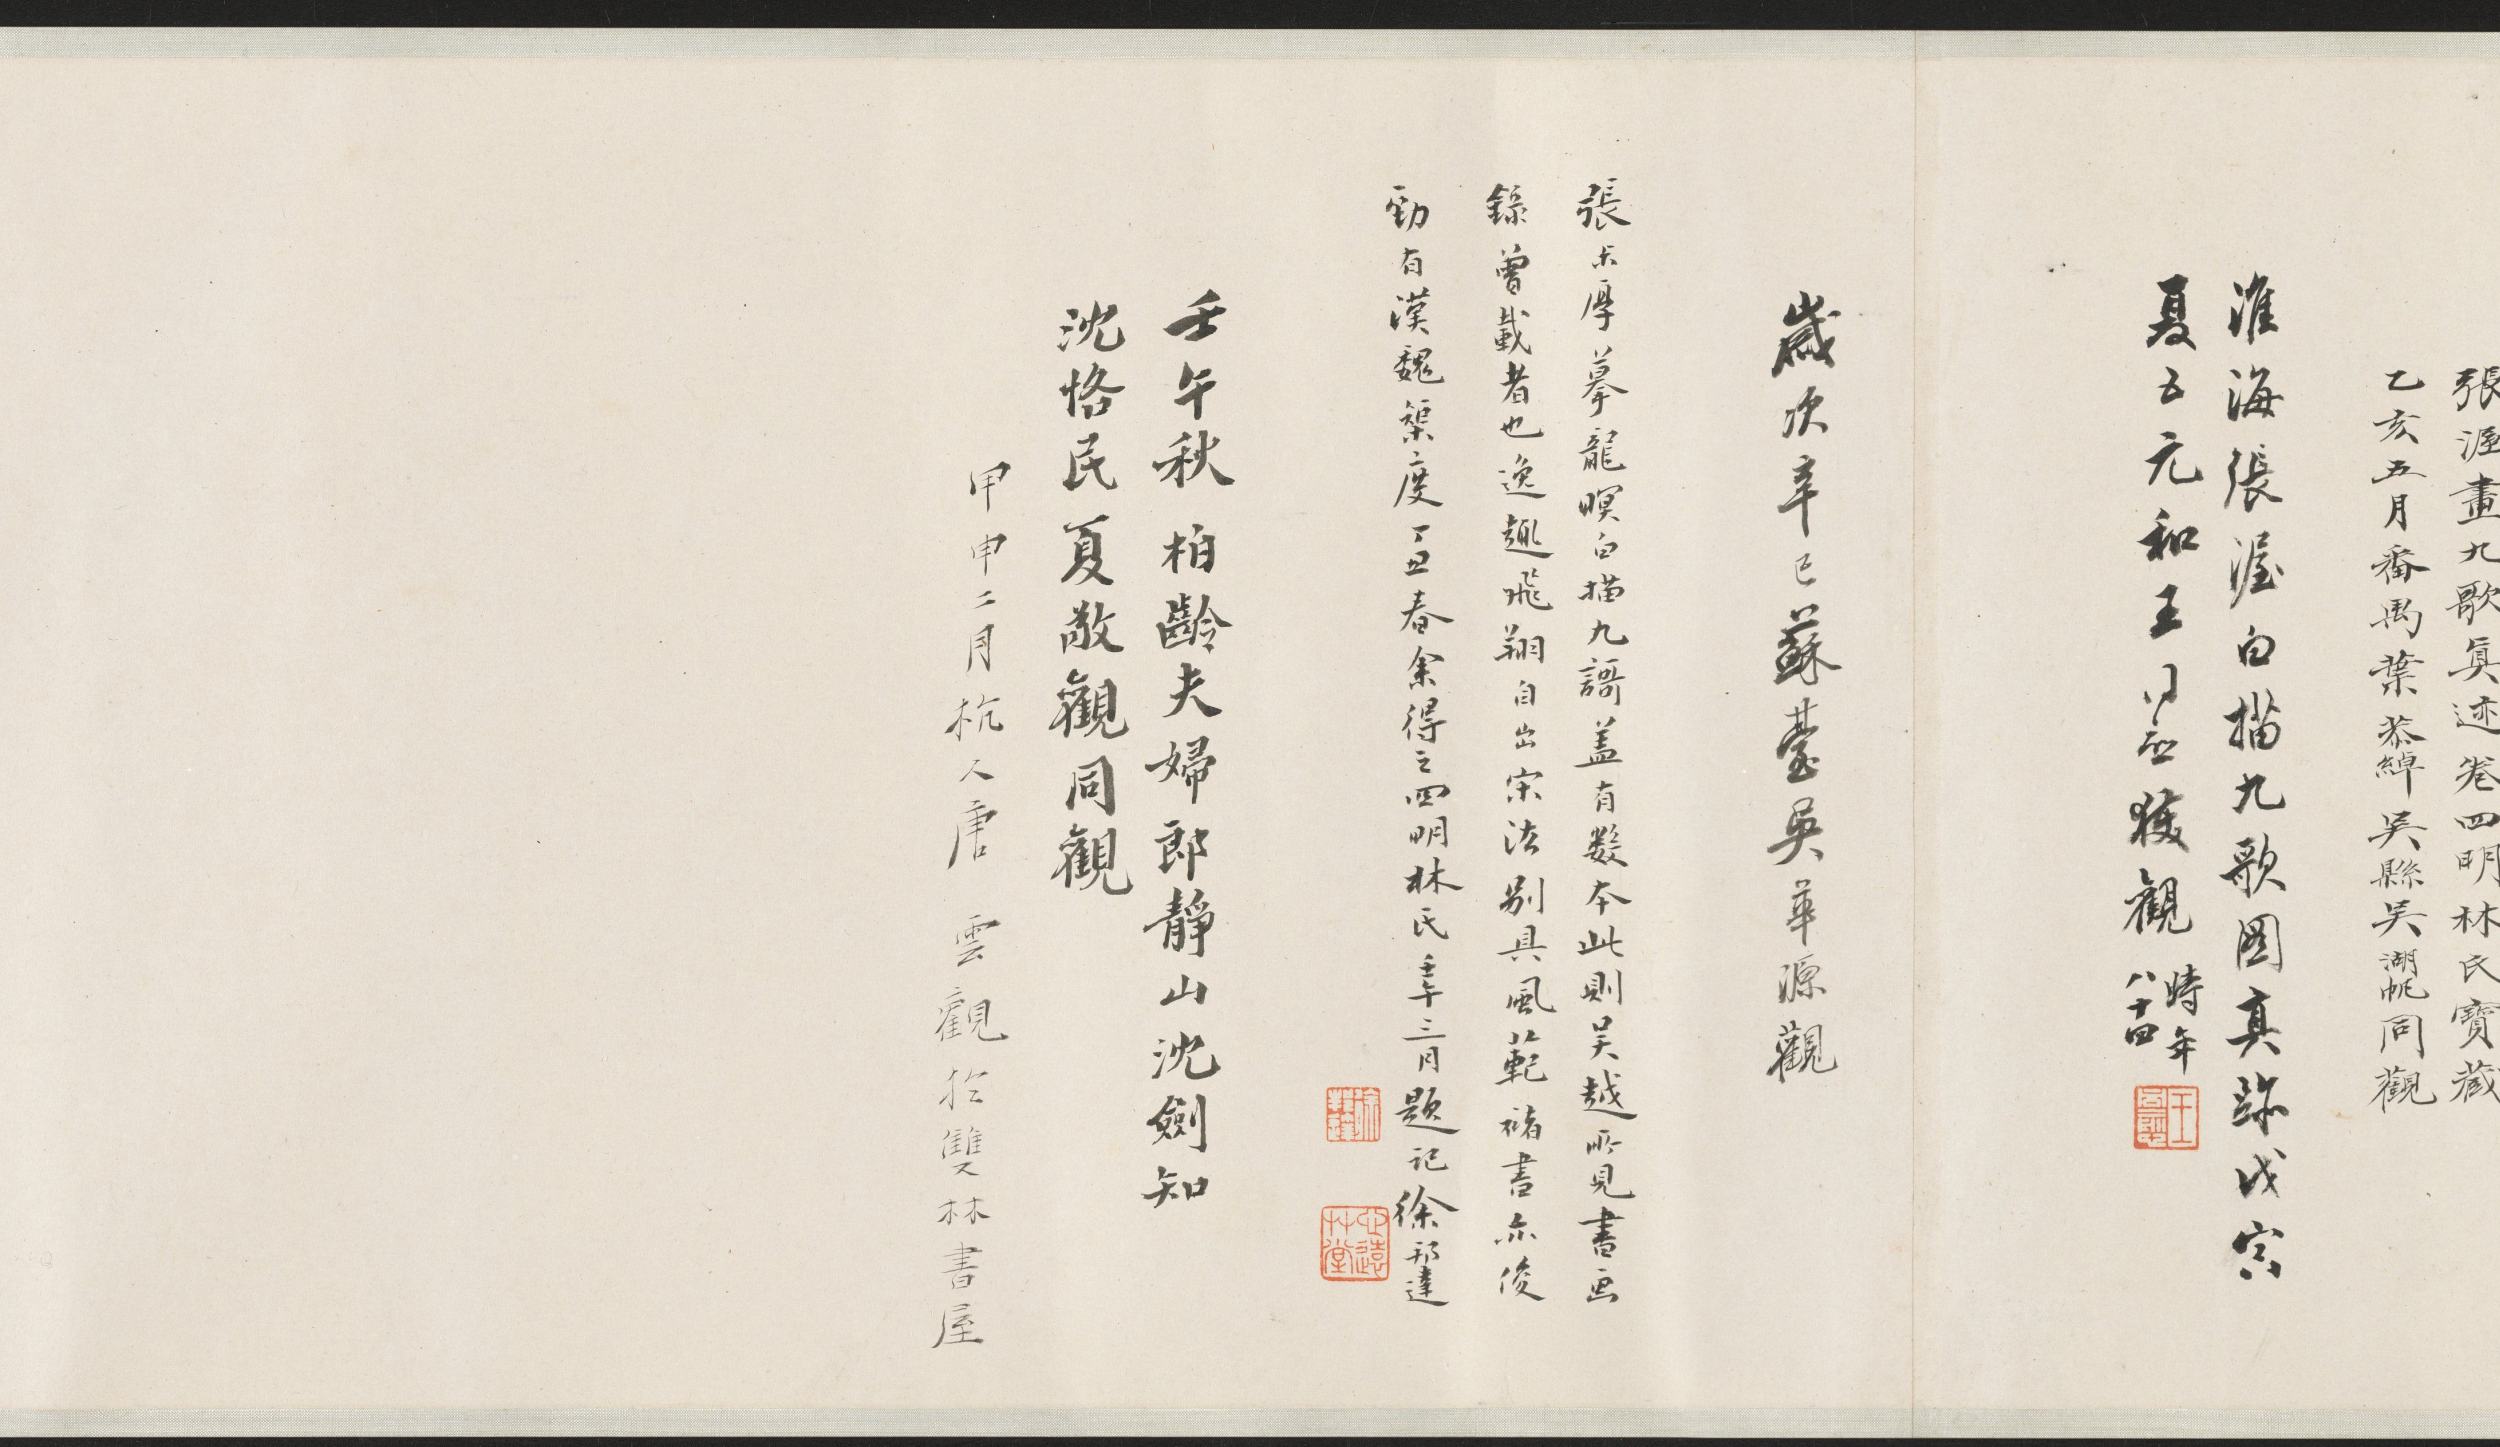 張渥畫九歌真迹卷四明林氏寶藏
乙亥五月番禺葉恭綽吳縣吳湖帆同觀
淮海張渥白描九歌图真跡戊寅
夏五元和王同愈獲觀時年
八十四
歲次辛巳蘇臺吳華源觀
張未厚摹龍暝白描九謌蓋有数本此則吴越所見書画
錄曾載者也逸趣飛翔自出宋法别具風範褚書亦俊
勁有漢魏榘度丁丑春余得之四明林氏壬午三月題記徐邦達
心遠草堂
壬午秋柏齡夫婦郎靜山沈劍知
沈恪民夏敬觀同觀
甲申二月杭人唐雲觀於雙林書屋